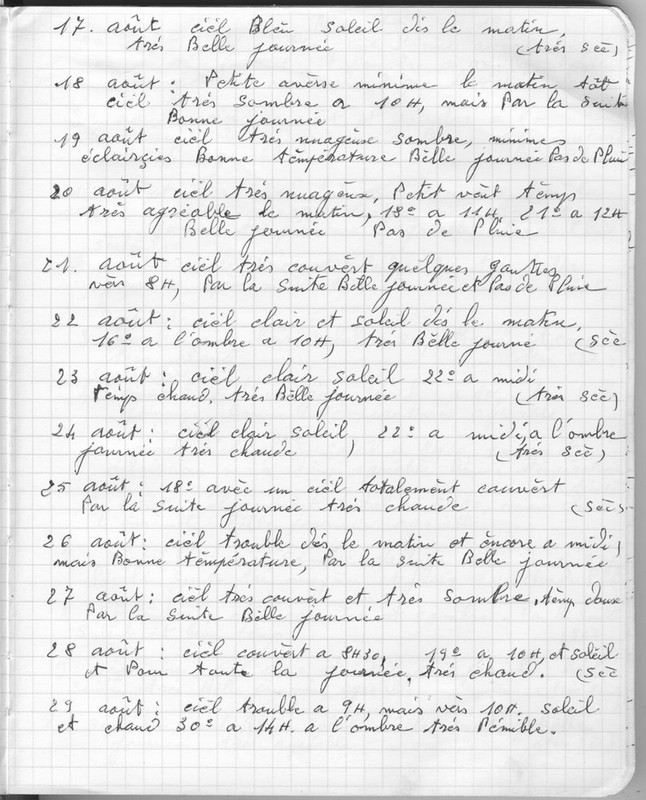 17. août cièl Blèu soleil dès le matin,
très Bèlle journèe (très sèc)
18 août : Petite avèrse minime le matin tôt
cièl très sombre a 10H, mais Par la suite
Bonne journèe
19 août cièl très nuagèuse sombre, minimes
éclaircies Bonne tèmpèrature Bèlle journèe Pas de Pluie
20 août cièl très nuagèux, Petit vènt tèmps
très agrèable le matin, 18° a 11H, 21° a 12H
Bèlle journèe Pas de Pluie
21. août cièl très couvèrt quèlques gouttes
vèrs 8H, Par la suite Bèlle journèe et Pas de Pluie
22 août : cièl clair et soleil dès le matin,
16° a l'ombre a 10H, très Bèlle journè (sèc
23 août : cièl clair soleil 22° a midi
Tèmps chaud, très Bèlle journèe (très sèc)
24 août : cièl clair soleil, 22° a midi, a l'ombre
journèe très chaude ) (très sèc)
25 août : 18° avèc un cièl totalemènt couvèrt
Par la suite journèe très chaude (sèc
26 août : cièl trouble dès le matin et èncore a midi,
mais Bonne tèmpèrature, Par la suite Bèlle journèe
27 août : cièl très couvèrt et très sombre, tèmp doux
Par la suite Bèlle journèe
28 août : cièl couvèrt a 8H30, 19° a 10H, et solèil
et Pour toute la journèe, très chaud. (sèc
29 août : cièl trouble a 9H, mais vèrs 10H. soleil
et chaud 30° a 14H. a l'ombre très Pènible.